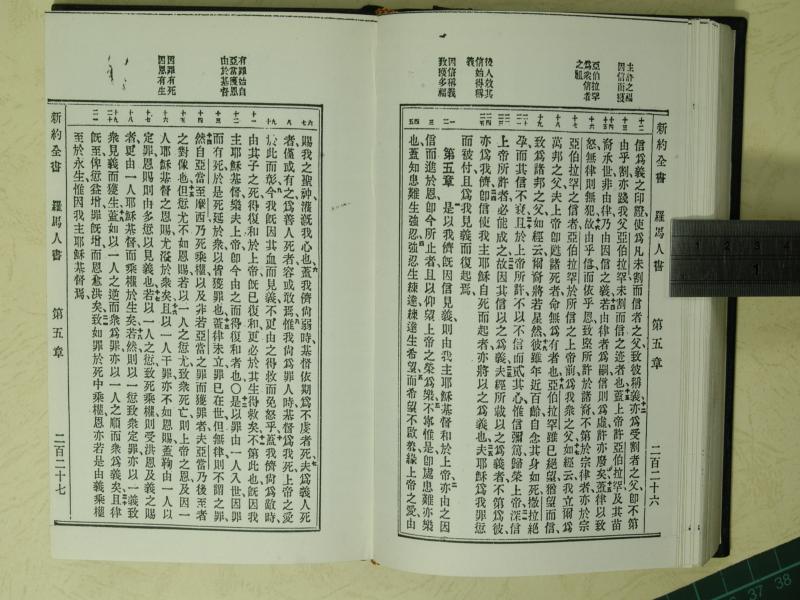 新約全書 羅馬人書 第五章 二百二十六
主許之福
因信而獲
亞伯拉罕
爲衆信者
之祖
後人效其
信始得稱
義
因信稱義
致獲多福
信爲義之印證使爲凡未割而信者之父致彼稱義亦爲受割者之父卽不第
由乎割亦踐我父亞伯拉罕未割而信之迹者也蓋上帝許亞伯拉罕及其苗
裔承世非由律乃由因信之義若由律者爲嗣信則爲虛許亦廢矣蓋律以致
怒無律則無犯故由乎信而依乎恩致堅所許於諸裔不第於宗律者亦於宗
亞伯拉罕之信者亞伯拉罕於所信之上帝前爲我衆之父如經云我立爾爲
萬邦之父夫上帝卽甦諸死者命無爲有者也亞伯拉罕雖已絕望猶望而信
致爲諸邦之父如經云爾裔將若星然彼雖年近百齡自念其身如死撒拉絕
孕而其信不衰且於上帝所許不以不信而貳其心惟信彌篤歸榮上帝深信
上帝所許者必能成之故因其信以之爲義夫經所載以之爲義者不第爲彼
亦爲我儕卽信使我主耶穌自死而起者亦將以之爲義也夫耶穌爲我罪愆
而被付且爲我見義而復起焉
第五章 是以我儕旣因信見義則由我主耶穌基督和於上帝亦由之因
信而進於恩卽今所止者且以仰望上帝之榮爲樂不寧惟是卽處患難亦樂
也蓋知患難生強忍強忍生練達練達生希望而希望不啟羞緣上帝之愛由
新約全書 羅馬人書 第五章 二百二十七
有罪始自
亞當獲恩
由於基督
因罪有死
因恩有生
賜我之聖神灌漑我心也蓋我儕尙弱時基督依期爲不虔者死夫爲義人死
者僅或有之爲善人死者容或敢焉惟我尙爲罪人時基督爲我死上帝之愛
於此而彰今我旣因其血而見義不更由之得救而免怒乎蓋我儕尙爲敵時
由其子之死得復和於上帝旣已復和更必於其生得救矣不第此也旣因我
主耶穌基督樂夫上帝卽今由之而得復和者也〇是以罪由一人入世因罪
而有死於是死延於衆以皆獲罪也蓋律未立罪已在世但無律則不謂之罪
然自亞當至摩西乃死乘權以及非若亞當之罪而獲罪者夫亞當乃後至者
之對像也但愆尤不如恩賜若以一人之愆尤致衆死亡則上帝之恩及因一
人耶穌基督之恩賜尤溢於衆矣且以一人干罪亦不如恩賜蓋鞫由一人以
定罪恩賜則由多愆以見義也若以一人之愆致死乘權則受洪恩及義之賜
者更由一人耶穌基督而乘權於生矣若然則以一愆致衆定罪亦以一義致
衆見義而獲生蓋如以一人之逆而衆爲罪亦以一人之順而衆爲義矣且律
旣至俾愆益增罪旣增而恩愈洪矣致如罪於死中乘權恩亦若是由義乘權
至於永生惟因我主耶穌基督焉